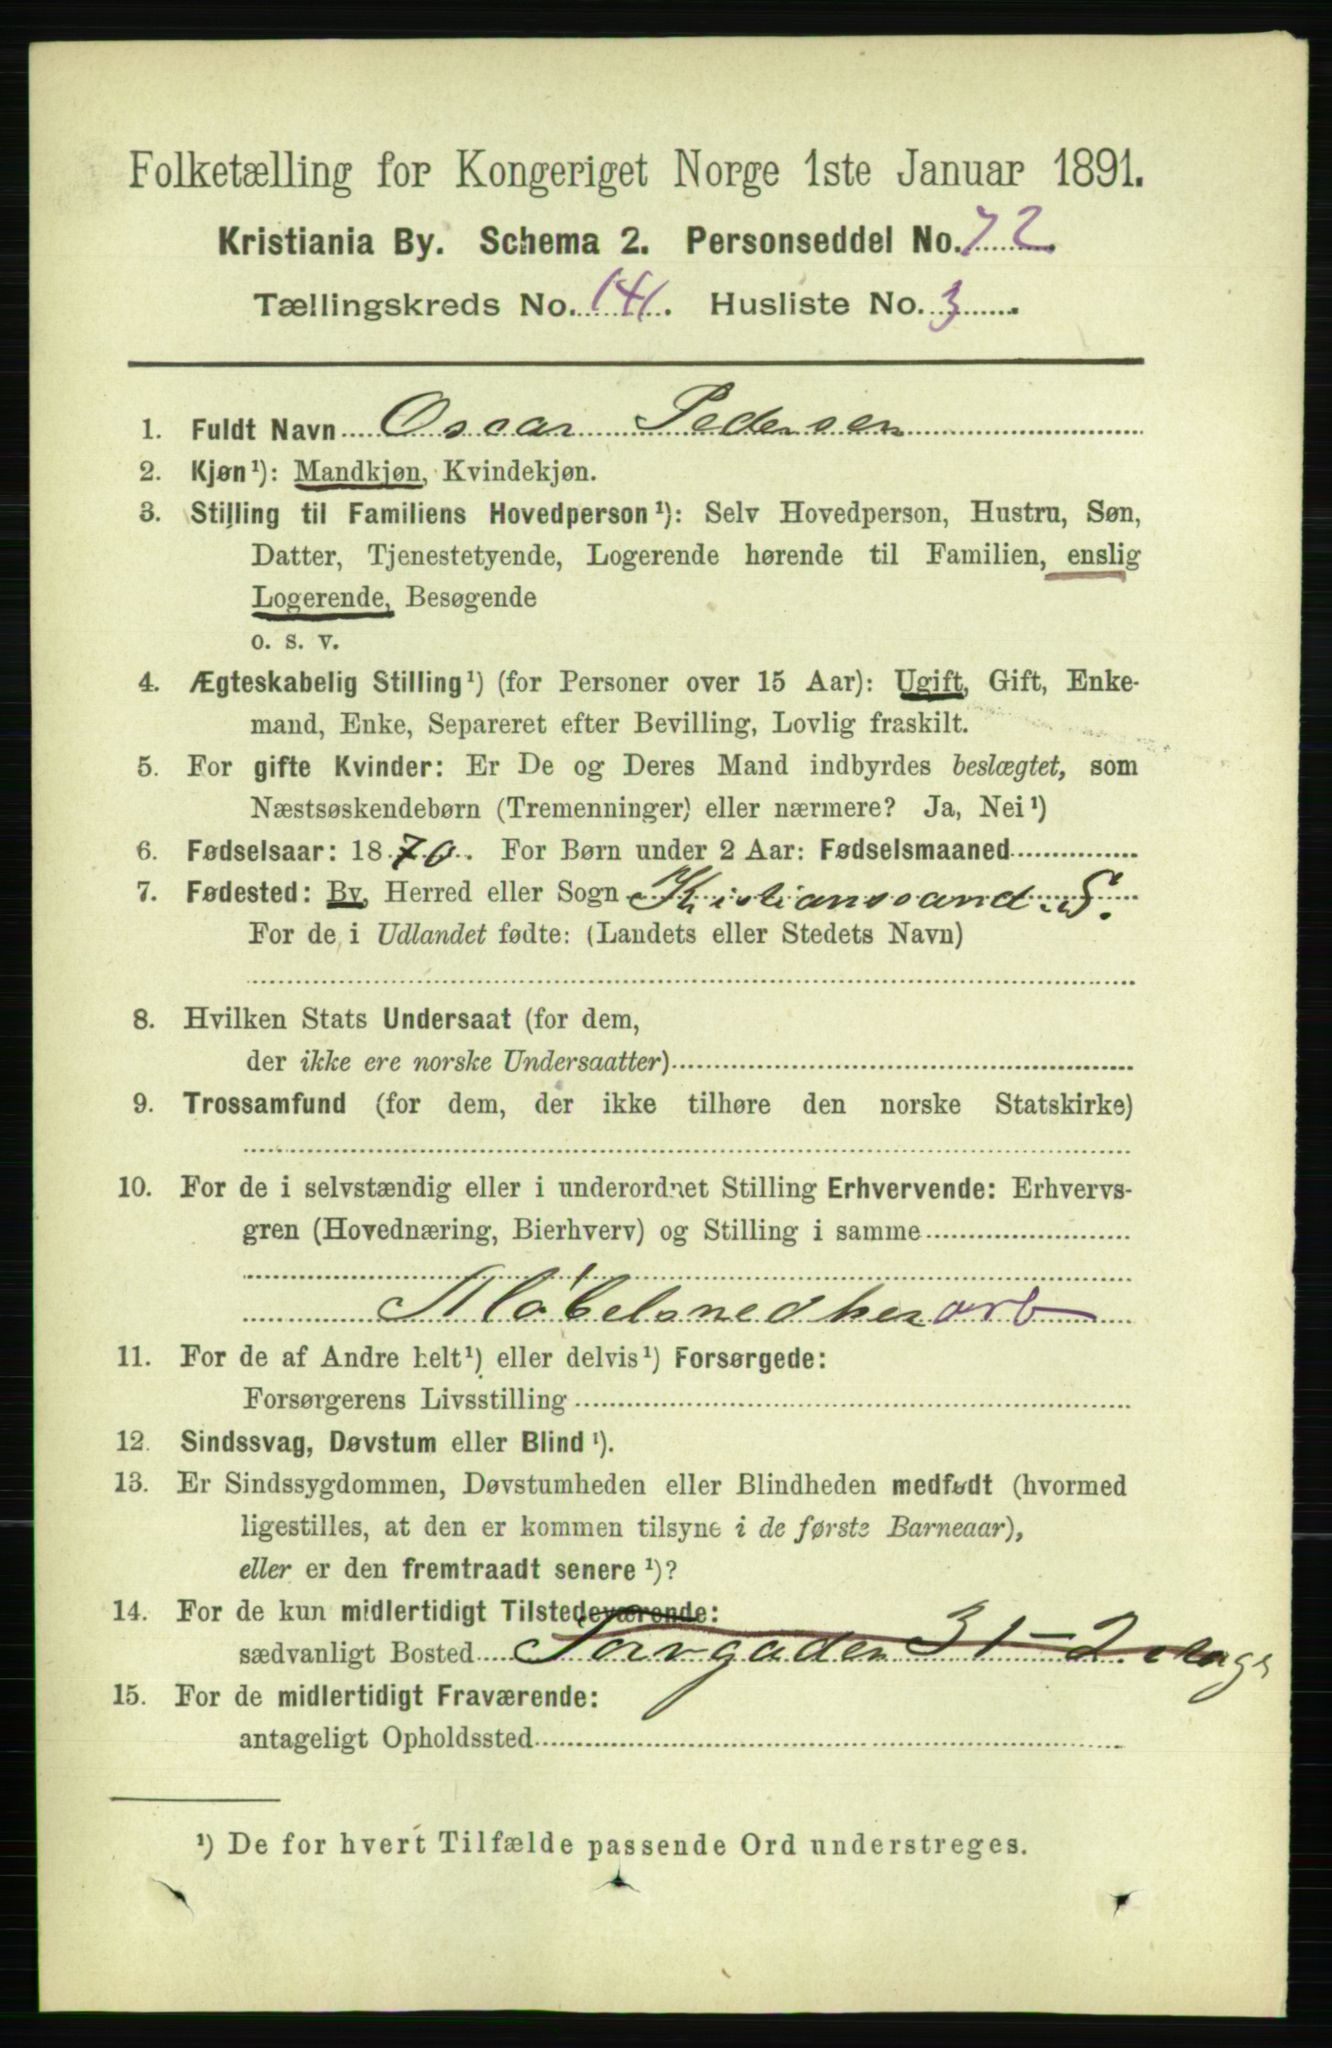 Folketælling for Kongeriget Norge 1ste Januar 1891.
Kristiania By. Schema 2. Personseddel No. 72
Tællingskreds No. 141. Husliste No. 3
1. Fuldt Navn Oscar Pedersen
2. Kjøn¹): Mandkjøn, Kvindekjøn.
3. Stilling til Familiens Hovedperson¹): Selv Hovedperson, Hustru, Søn,
Datter, Tjenestetyende, Logerende hørende til Familien, enslig
Logerende, Besøgende
o. s. v.
4. Ægteskabelig Stilling¹) (for Personer over 15 Aar): Ugift, Gift, Enke-
mand, Enke, Separeret efter Bevilling, Lovlig fraskilt.
5. For gifte Kvinder: Er De og Deres Mand indbyrdes beslægtet, som
Næstsøskendebørn (Tremenninger) eller nærmere? Ja, Nei¹)
6. Fødselsaar: 1870. For Børn under 2 Aar: Fødselsmaaned
7. Fødested: By, Herred eller Sogn Kristianssand. S.
For de i Udlandet fødte: (Landets eller Stedets Navn)
8. Hvilken Stats Undersaat (for dem,
der ikke ere norske Undersaatter)
9. Trossamfund (for dem, der ikke tilhøre den norske Statskirke)
10. For de i selvstændig eller i underordnet Stilling Erhvervende: Erhvervs-
gren (Hovednæring, Bierhverv) og Stilling i samme
Møbelsnedkerarb
11. For de af Andre helt¹) eller delvis¹) Forsørgede:
Forsørgerens Livsstilling
12. Sindssvag, Døvstum eller Blind¹).
13. Er Sindssygdommen, Døvstumheden eller Blindheden medfødt (hvormed
ligestilles, at den er kommen tilsyne i de første Barneaar),
eller er den fremtraadt senere¹)?
14. For de kun midlertidigt Tilstedeværende:
sædvanligt Bosted Torvgaden 31-2
15. For de midlertidigt Fraværende:
antageligt Opholdssted
¹) De for hvert Tilfælde passende Ord understreges.